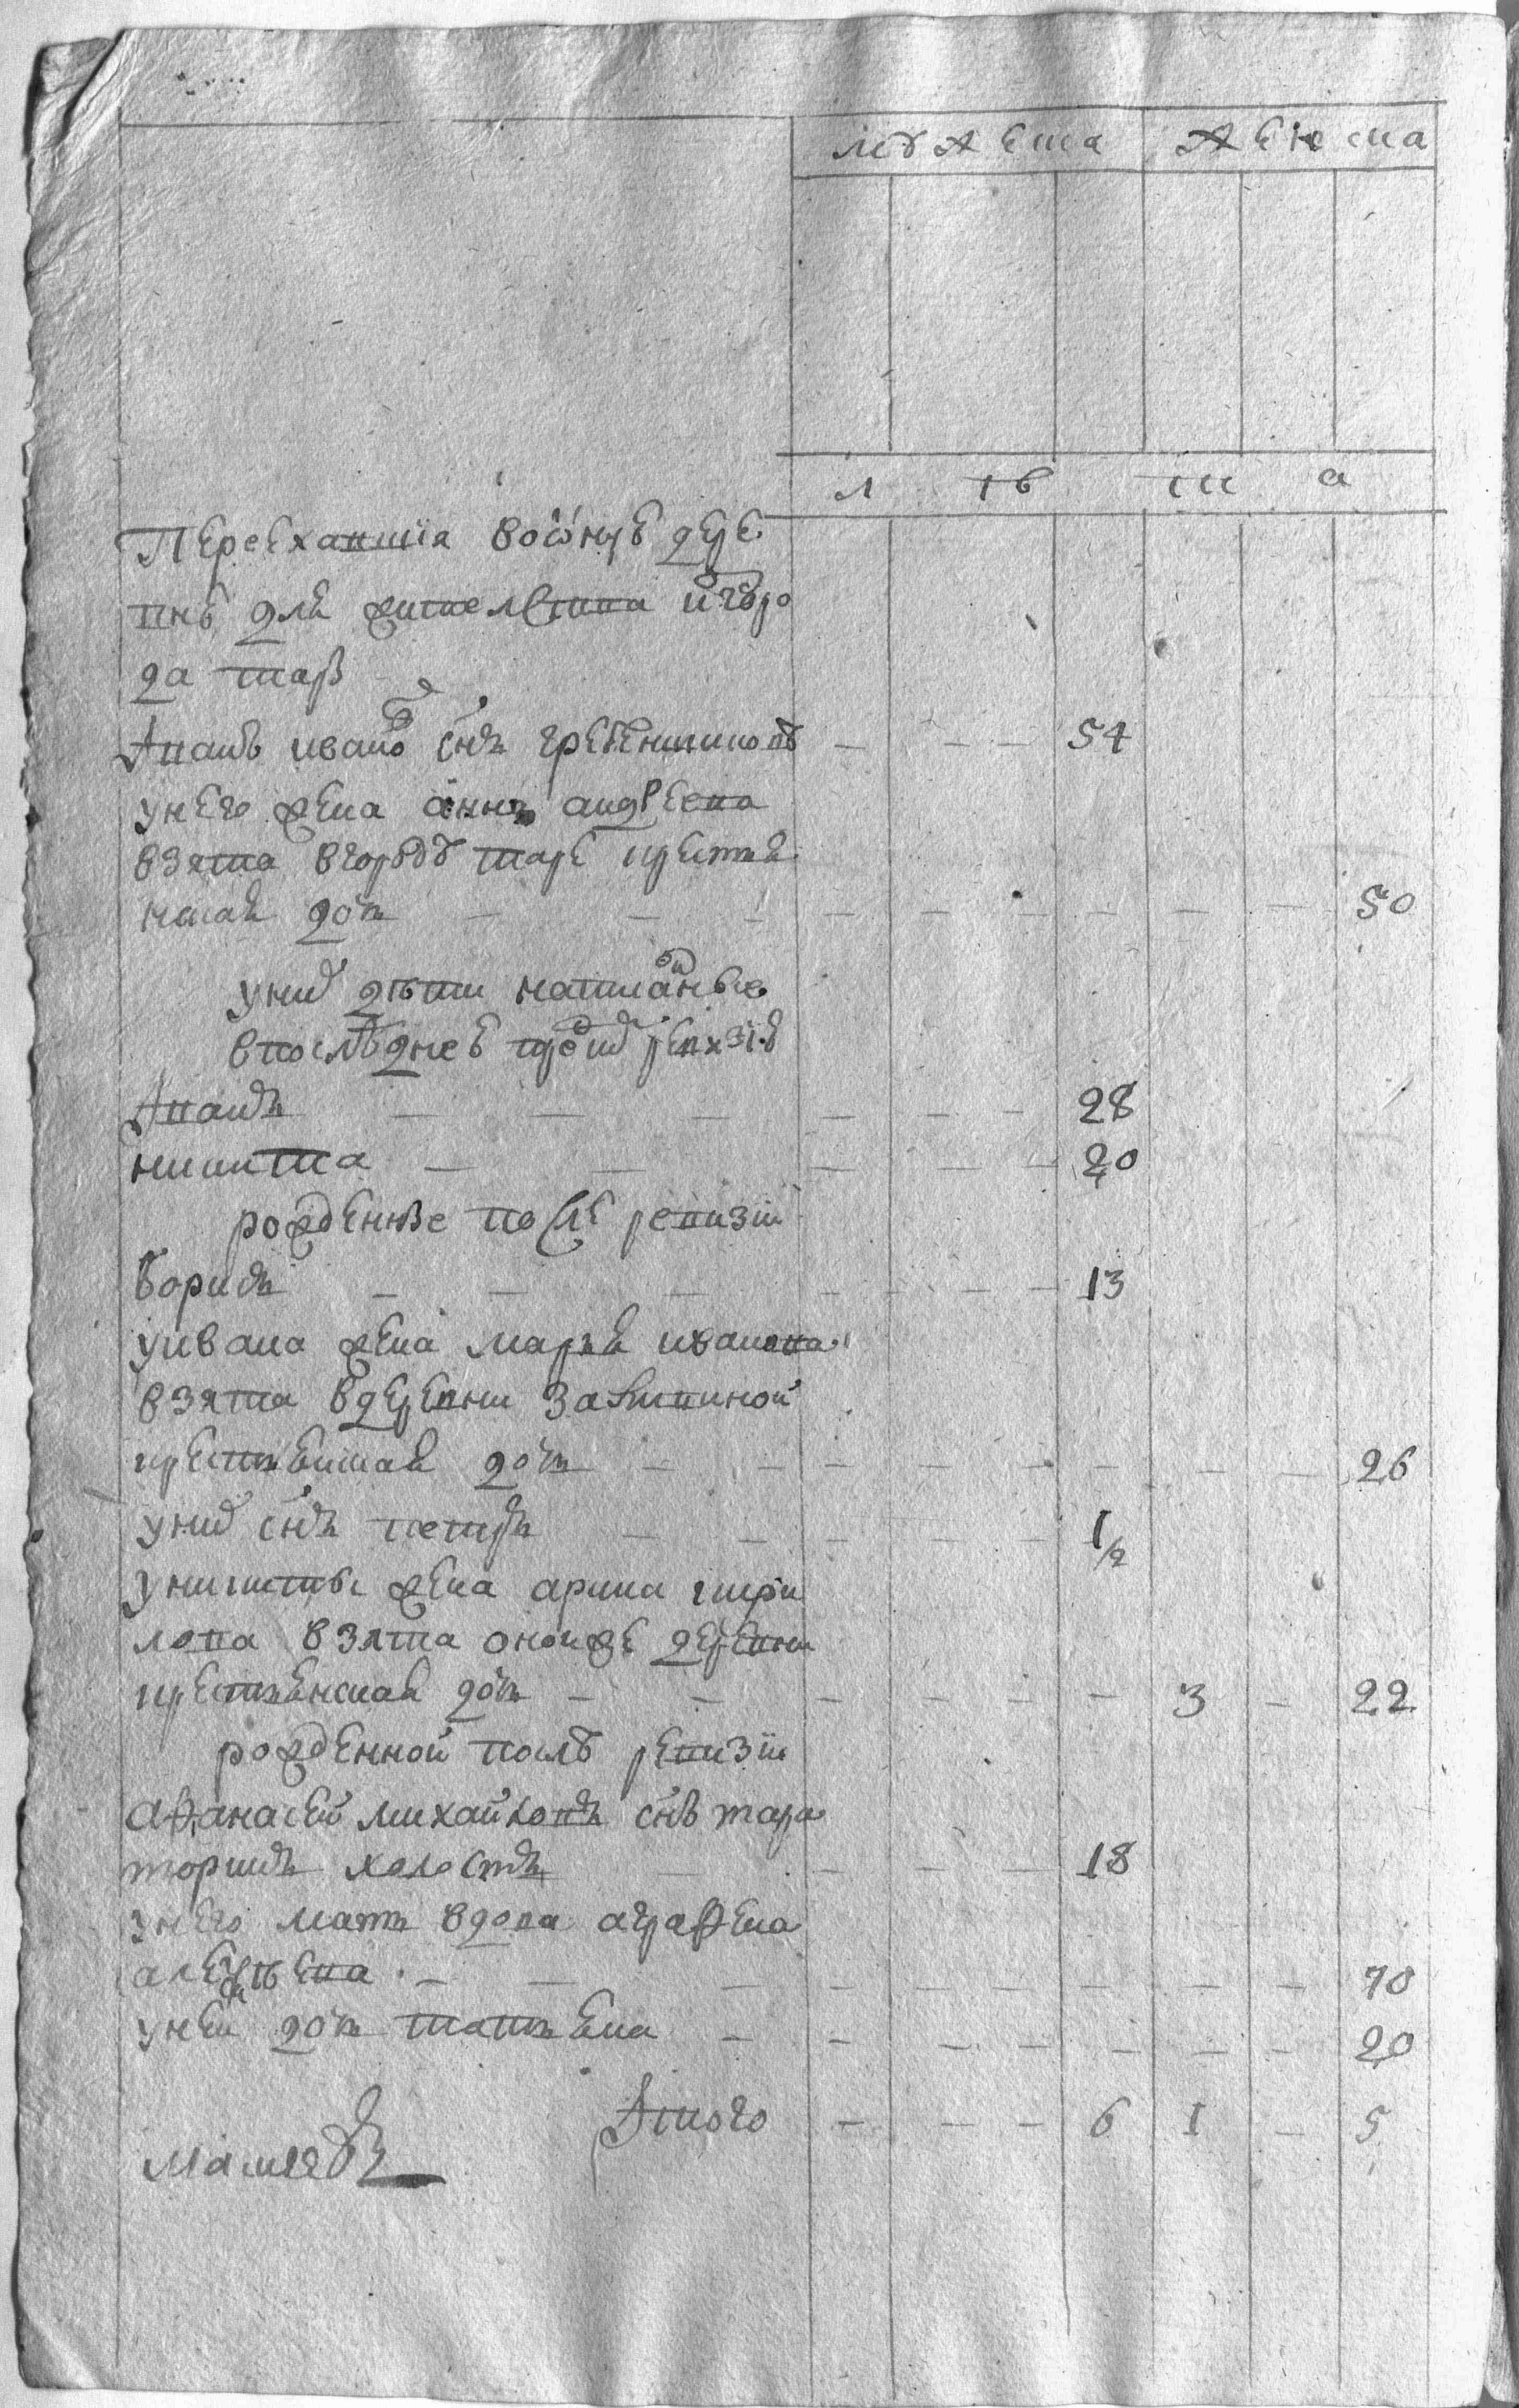 мужеска женска
л ѣ т а
Переехавшия во оную дере
вню для жителства из горо
да тары
Иванъ Ивановъ снъ Гребенщиковъ — — — 54
у него жена Анна Андреева
взята в городе таре крестья
нская дочь — — — 50
у них дети написанные
в последней пред сим ревизие
Иванъ — — — 28
Никита — — — 20
рожденные после ревизии
Борисъ — — — 13
у Ивана жена Марья Иванова
взята в деревни
крестьянская дочь — — — 26
у них снъ Петръ — — — 1/2
у Никиты жена Арина Гаври
лова взята оной же деревни
крестьянская дочь — — — 3 — 22
рожденной после ревизии
Афанасей Михайловъ снъ
холостъ — — — 18
у него мать вдова Аграфена
Алексеева — — — 70
у ней дочь Татьяна — — — 20
Итого — — — 6 1 — 5